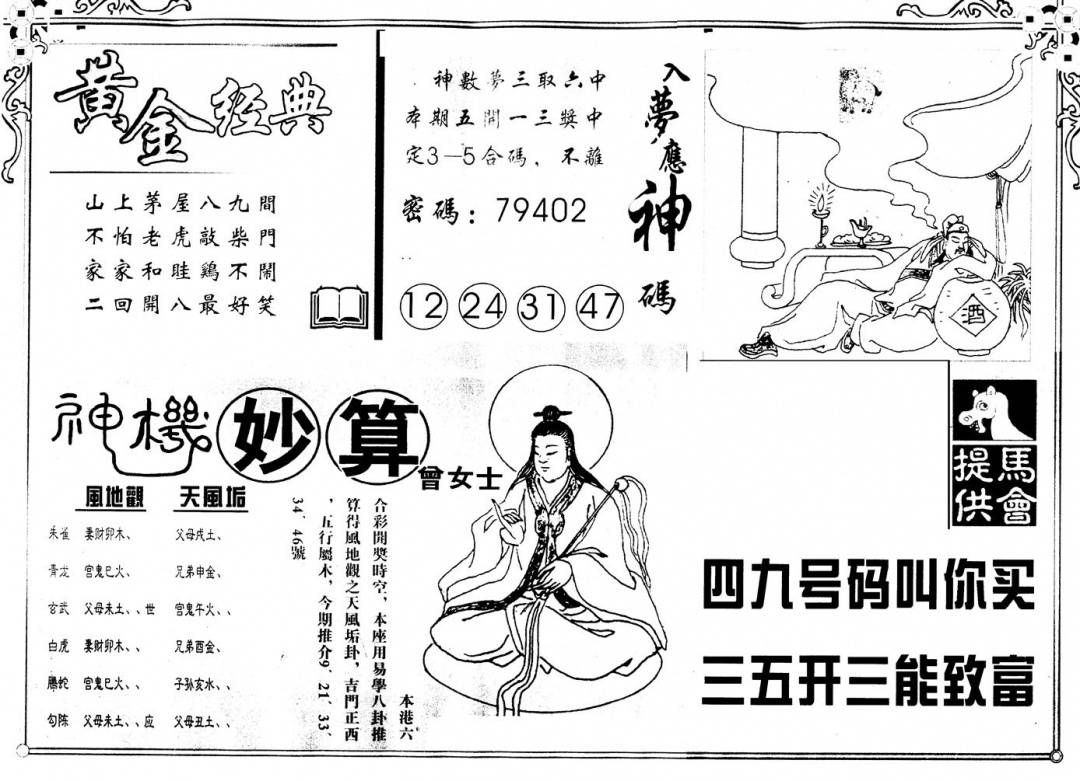 黄金经典
山上茅屋八九間
不怕老虎敲柴門
家家和哇鷄不鬧
二回開八最好笑
神數夢三取六中
本期五開一三獎中
定3—5合碼、不離
密碼：79402
12 24 31 47
入夢應神碼
酒
神機妙算
曾女士
風地觀 天風垢
朱雀 妻財卯木、 父母戌土、
青龙 官鬼巳火、 兄弟申金、
玄武 父母未土、、世 官鬼午火、、
白虎 妻財卯木、、 兄弟酉金、
騰蛇 官鬼巳火、、 子孙亥水、、
勾陈 父母未土、、应 父母丑土、、
本港六
合彩開獎時空，本座用易學八卦推
算得風地觀之天風垢卦，吉門正西
，五行屬木，今期推介9、21、33、
34、46號
馬會提供
四九号码叫你买
三五开三能致富